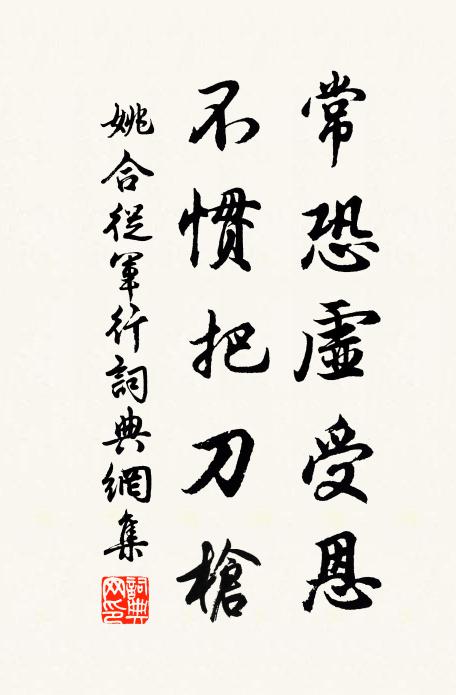 常恐虛受恩
不慣把刀槍
姚合從軍行詞典網集
詞典網印